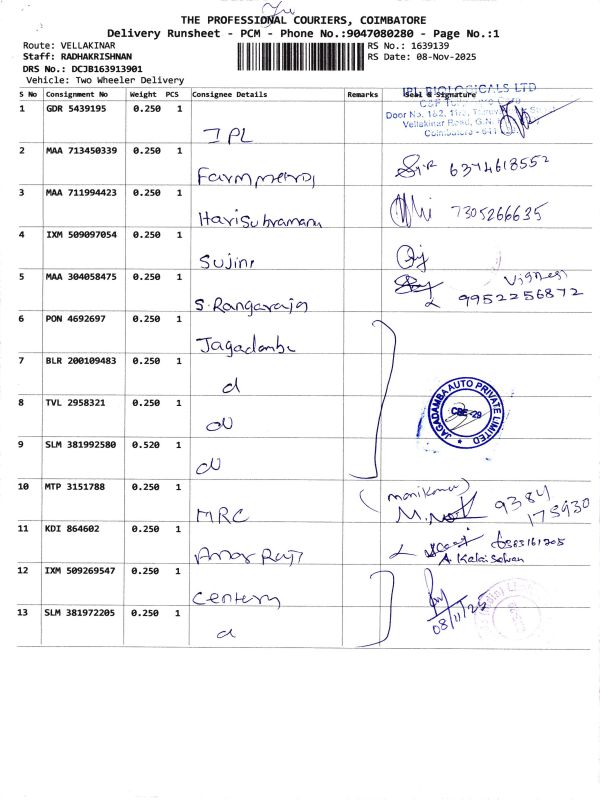 THE PROFESSIONAL COURIERS, COIMBATORE
Delivery Runsheet - PCM - Phone No.:9047080280 - Page No.:1
Route: VELLAKINAR RS No.: 1639139
Staff: RADHAKRISHNAN RS Date: 08-Nov-2025
DRS No.: DCJB163913901
Vehicle: Two Wheeler Delivery
S No Consignment No Weight PCS Consignee Details Remarks Seal & Signature
IPL BIOLOGICALS LTD
1 GDR 5439195 0.250 1
Door No. 162, 11
Vellakinar Road, G.N.
Coimbatore - 641
IPL
2 MAA 713450339 0.250 1
6374618552
3 MAA 711994423 0.250 1
Harisubramanu 7305266635
4 IXM 509097054 0.250 1
Sujini
5 MAA 304058475 0.250 1
S. Rangaraja 9952256872
6 PON 4692697 0.250 1
Jagadamba
7 BLR 200109483 0.250 1
d
JAGADAMBA AUTO PRIVATE LIMITED
CBE-29
8 TVL 2958321 0.250 1
9 SLM 381992580 0.520 1
10 MTP 3151788 0.250 1
9384
MRC 175930
11 KDI 864602 0.250 1
A Kalaiselvan
12 IXM 509269547 0.250 1
Centery
08/11/25
13 SLM 381972205 0.250 1
d